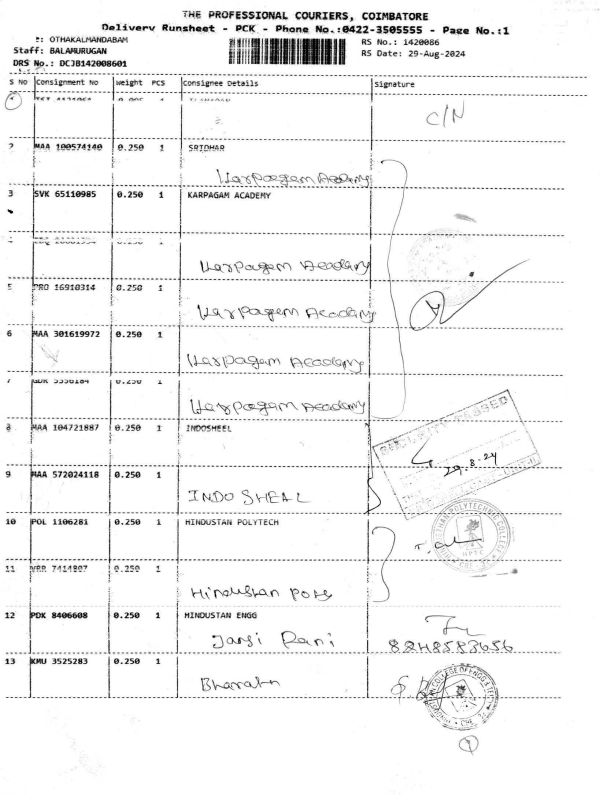 THE PROFESSIONAL COURIERS, COIMBATORE
Delivery Runsheet - PCK - Phone No.:0422-3505555 - Page No.:1
: OTHAKALMANDABAM
Staff: BALAMURUGAN
DRS No.: DCJB142008601
RS No.: 1420086
RS Date: 29-Aug-2024
S No Consignment No Weight PCS Consignee Details Signature
1 C/N
2 MAA 100574140 0.250 1 SRIDHAR
Karpagam Academy
3 SVK 65110985 0.250 1 KARPAGAM ACADEMY
Karpagam Academy
5 PRO 16910314 0.250 1
Karpagam Academy
A
6 MAA 301619972 0.250 1
Karpagam Academy
7 0.250 1
Karpagam Academy
8 MAA 104721887 0.250 1 INDOSHEEL
29.8.24
9 MAA 572024118 0.250 1
INDO SHEAL
10 POL 1106281 0.250 1 HINDUSTAN POLYTECH
11 VRR 7414807 0.250 1
Hindustan Poly
12 PDK 8406608 0.250 1 HINDUSTAN ENGG
Jansi Rani
8248583656
13 KMU 3525283 0.250 1
Bharath